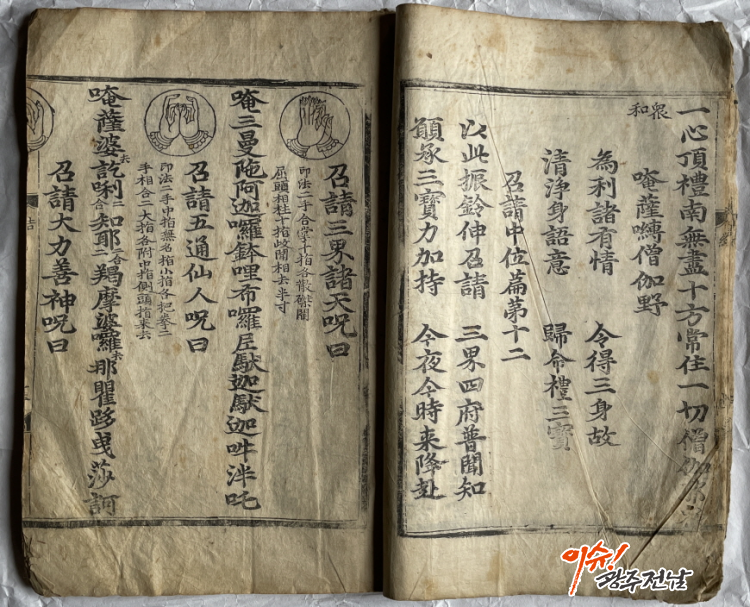 一心頂禮南無盡十方常住一切僧伽
衆和
唵薩嚩僧伽野
為利諸有情 令得三身故
清淨身語意 歸命禮三寶
召請中位篇第十二
以此振鈴伸召請 三界四府普聞知
願承三寶力加持 今夜今時来降赴
召請三界諸天呪曰
印法二手合掌十指各散礫開
屈頭相柱十指歧開相去半寸
唵三曼陁阿迦囉鉢哩布囉尼馱迦馱迦吽泮吒
召請五通仙人呪曰
印法二手中指無名指小指各把拳二
手相合二大指各附中指側頭指来去
唵薩婆乾唎二合知耶二合羯摩婆囉去那瞿跢曳莎訶
召請大力善神呪曰
이슈!
광주전남